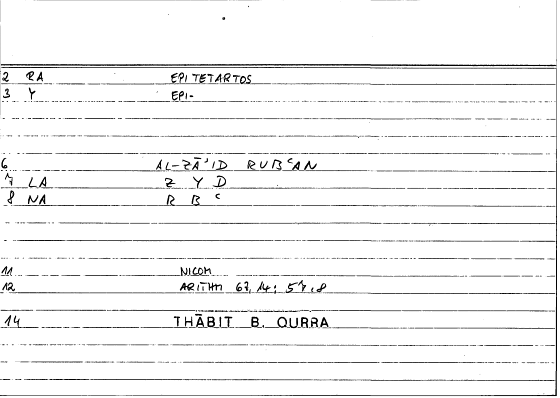 2 RA EPITETARTOS
3 Y EPI-
6 AL-ZĀʾID RUBʿAN
7 LA Z Y D
8 NA R B ʿ
11 NICOM
12 ARITHM 67,14; 57,8
14 THĀBIT B. QURRA